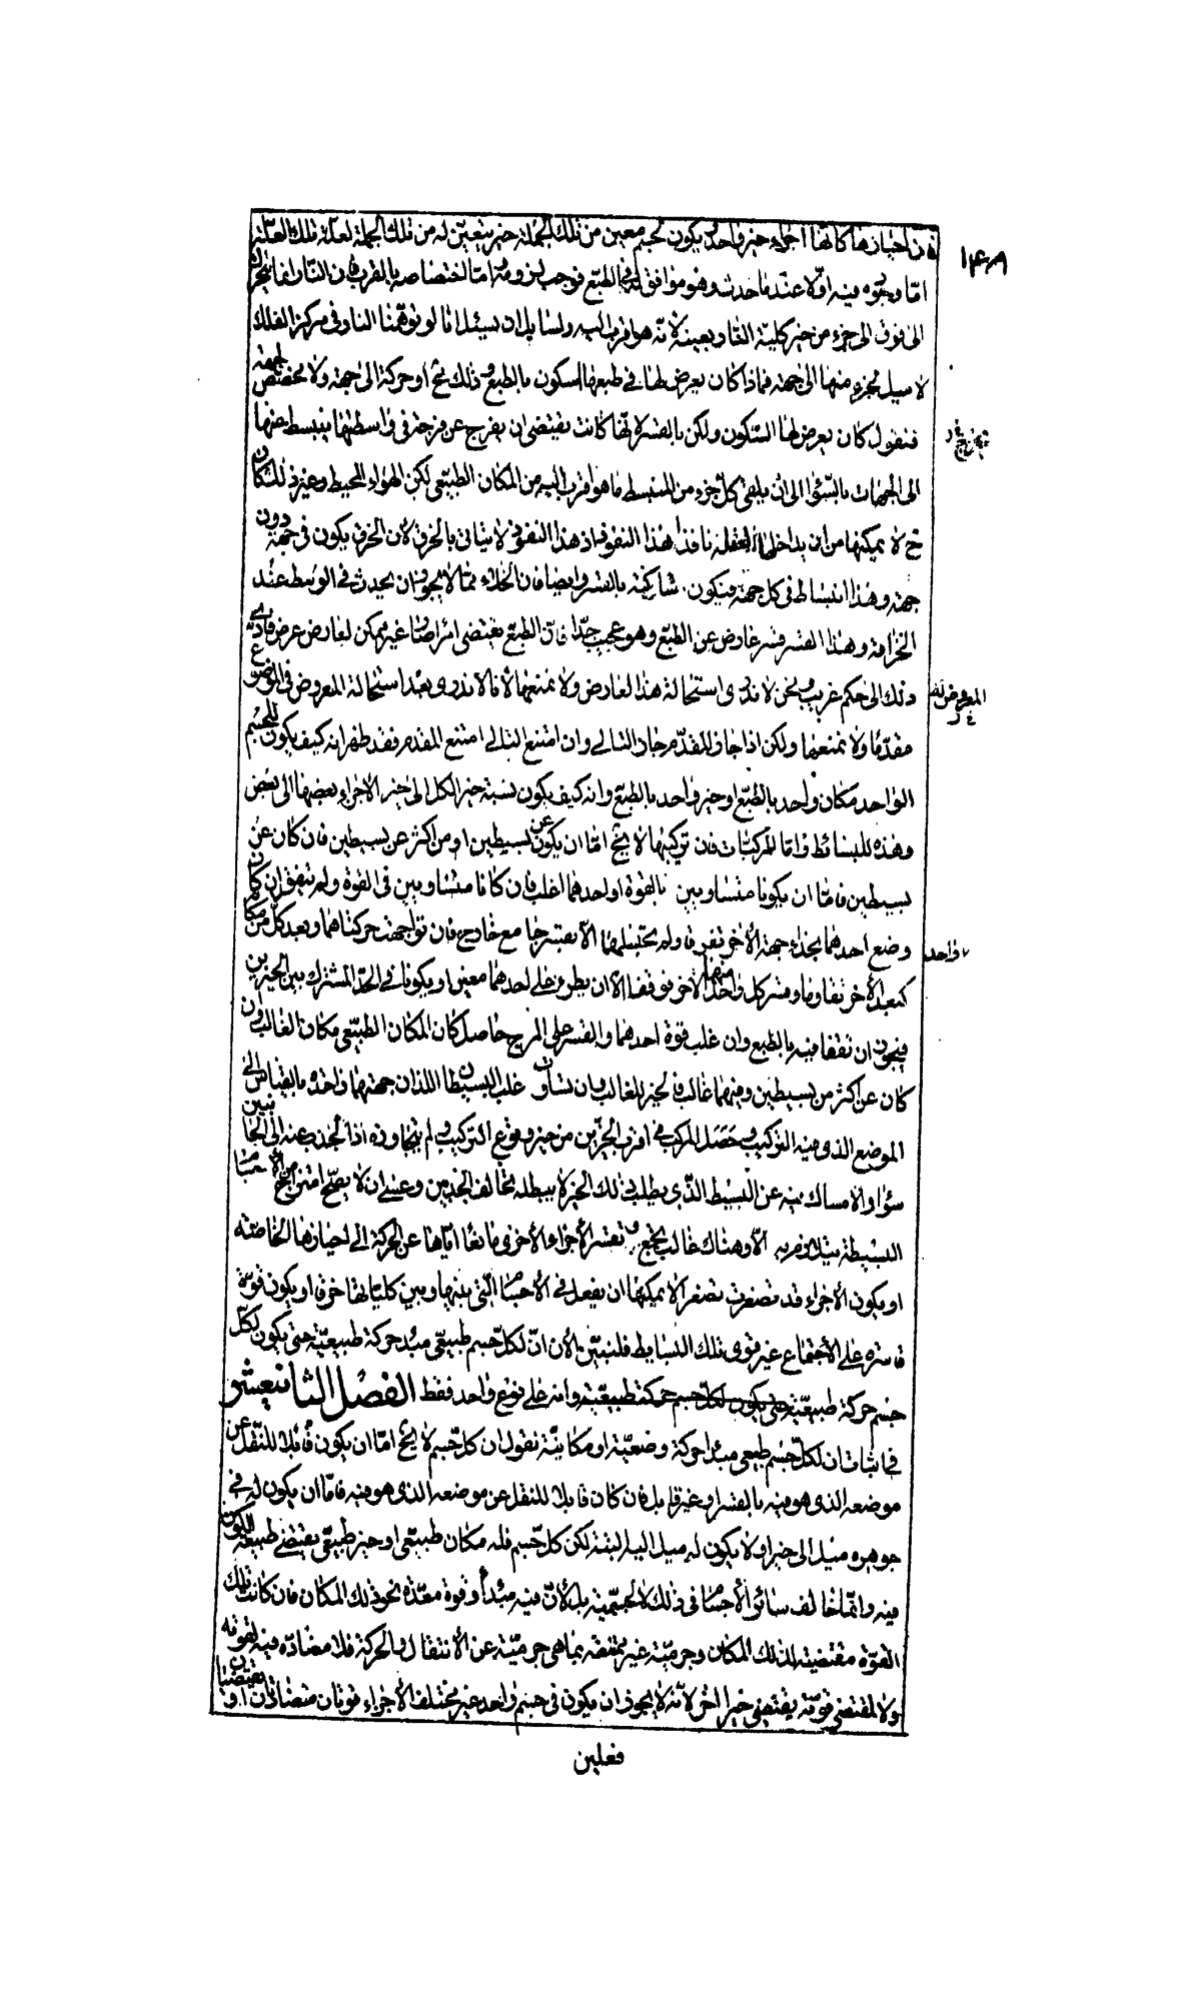 ١٤٨
فان احيازها كانها اجزاء حيز واحد يكون لجسم معين من تلك الجملة حيز يتعين له من تلك الجملة لعلة تلك العلة
اما وجوه فيه اولا عند ما حدث وهو موافق له فى الطبع فوجب لزومه واما لاختصاصه بالقرب فان النار انما تتحرك
الى فوق الى جزء من حيز كلية النار بعينه لانه هو اقرب اليه ولسائل ان يسئل انا لو توهمنا النار فى مركز الفلك
لا سبيل لجزء منها الى جهة فماذا كان يعرض لها فى طبعها السكون بالطبع وذلك مح او حركة الى جهة ولا مخصص لجهة
فنقول كان يعرض لها السكون ولكن بالقسر لانها كانت يقتضى ان يفرج عن فرجة فى واسطتها ينبسط عنها
الى الجهات بالسواء الى ان يلقى كل جزء من المنبسط ما هو اقرب اليه من المكان الطبيعى لكن الهواء المحيط وغير ذلك كان
ح لا يمكنها من ان يداخلها نافذا هذا النفوذ اذ هذا النفوذ لا يتاتى بالخرق لان الخرق يكون فى جهة دون
جهة وهذا انبساط فى كل جهة فيكون ساكنة بالقسر وايضا فان الخلاء مما لا يجوز ان يحدث فى الوسط عند
وهذا القسر قسر عارض عن الطبع وهو عجيب جدا فان الطبع يقتضى امرا صار غير ممكن لعارض عرض فادى
ذلك الى حكم غريب ونحن لا ندرى استحالة هذا العارض ولا نمنعها لانا لا ندرى بعد استحالة المعروض فى الموضوع
المعروض له
مقدما ولا نمنعها ولكن اذا جاز المقدم جاز التالى وان امتنع التالى امتنع المقدم فقد ظهر انه كيف يكون للجسم
الواحد مكان واحد بالطبع او حيز واحد بالطبع وانه كيف يكون نسبة حيز الكل الى حيز الاجزاء بعضها الى بعض
وهذه للبسائط واما المركبات فان تركيبها لا يخ اما ان يكون عن بسيطين او من اكثر عن بسيطين فان كان عن
بسيطين فاما ان يكونا متساويين بالقوة او احدهما اغلب فان كانا متساويين فى القوة ولم يتفق ان كان
وضع احدهما بحذاء جهة الاخر تفرقا ولم يحتبسا الا بقسر جامع خارج فان تواجهت حركتاهما وبعد كل من مكان
واحد
كبعد الاخر تقاوما وقسر كل واحد منهما الاخر فوقفا الا ان يطرؤ على احدهما معين او يكونا فى الحد المشترك بين الحيزين
فيجوز ان تقفا فيه بالطبع وان غلب قوة احدهما والقسر على المزج حاصل كان المكان الطبيعى مكان الغالب وان
كان عن اكثر من بسيطين وفيهما غالب فالحيز للغالب وان تساوت غلب البسيطان اللذان جهتهما واحدة بالقياس الى
الموضع الذى فيه التركيب وحصل المركب فى اقرب الحيزين من حيز وقوع التركيب ولم يتجاوزه اذ الجذب عنه الى الجانبين
سواء والامساك فيه عن البسيط الذى يطلب ذلك الحيز لا يبطله تخالف الجذبين وعسى ان لا يصح امتزاج من الاجسام
البسيطة الا وهناك غالب يجمع ويقسر الاجزاء الاخرى مانعا اياها عن الحركة الى احيازها الخاصة
او يكون الاجزاء قد تصغرت تصغرا لا يمكنها ان يفعل فى الاجسام التى بينها وبين كلياتها خرقا او يكون قوة
قاسرة على الاجتماع غير قوى تلك البسايط فلنبين الان ان لكل جسم طبيعى مبدء حركة طبيعية حتى يكون لكل
جسم حركة طبيعية حتى يكون لكل جسم حركة طبيعية وانه على نوع واحد فقط الفصل الثانيعشر
فى اثبات ان لكل جسم طبيعى مبدء حركة وضعية او مكانية نقول ان كل جسم لا يخ اما ان يكون قابلا للنقل عن
موضعه الذى هو فيه بالقسر او غير قابل فان كان قابلا للنقل عن موضعه الذى هو فيه فاما ان يكون له فى
جوهره ميل الى حيز او لا يكون له ميل اليه البتة لكن كل جسم فله مكان طبيعى او حيز طبيعى يقتضى طبيعة الكون
فيه وانما خالف سائر الاجسام فى ذلك لا لجسميته بل لان فيه مبدأ وقوة معدة نحو ذلك المكان فان كانت تلك
القوة مقتضية لذلك المكان وجرمية غير ممتنعة بما هى جرمية عن الانتقال والحركة فلا مضادة فيه لقوته
ولا لمقتضى قوته يقتضى حيزا اخر لانه لا يجوز ان يكون فى جسم واحد غير مختلف الاجزاء قوتان متضادتان او يقتضيان
فعلين